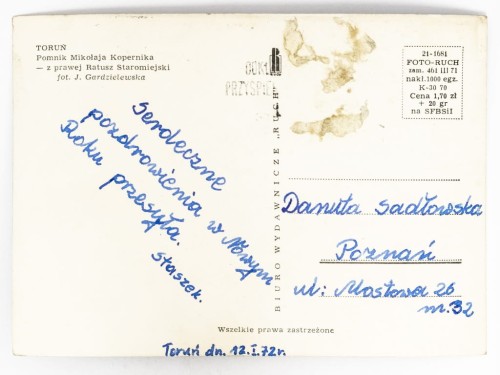 TORUŃ
Pomnik Mikołaja Kopernika
— z prawej Ratusz Staromiejski
fot. J. Gardzielewska
21-1681
FOTO-RUCH
zam. 461 III 71
nakł. 1000 egz.
K-30 70
Cena 1,70 zł
+ 20 gr
na SFBSiI
Serdeczne
pozdrowienia w Nowym
Roku przesyła.
Staszek.
BIURO WYDAWNICZE „RUCH"
Danuta Sadłowska
Poznań
ul: Mostowa 26
m. 32
Wszelkie prawa zastrzeżone
Toruń dn. 12.I.72r.